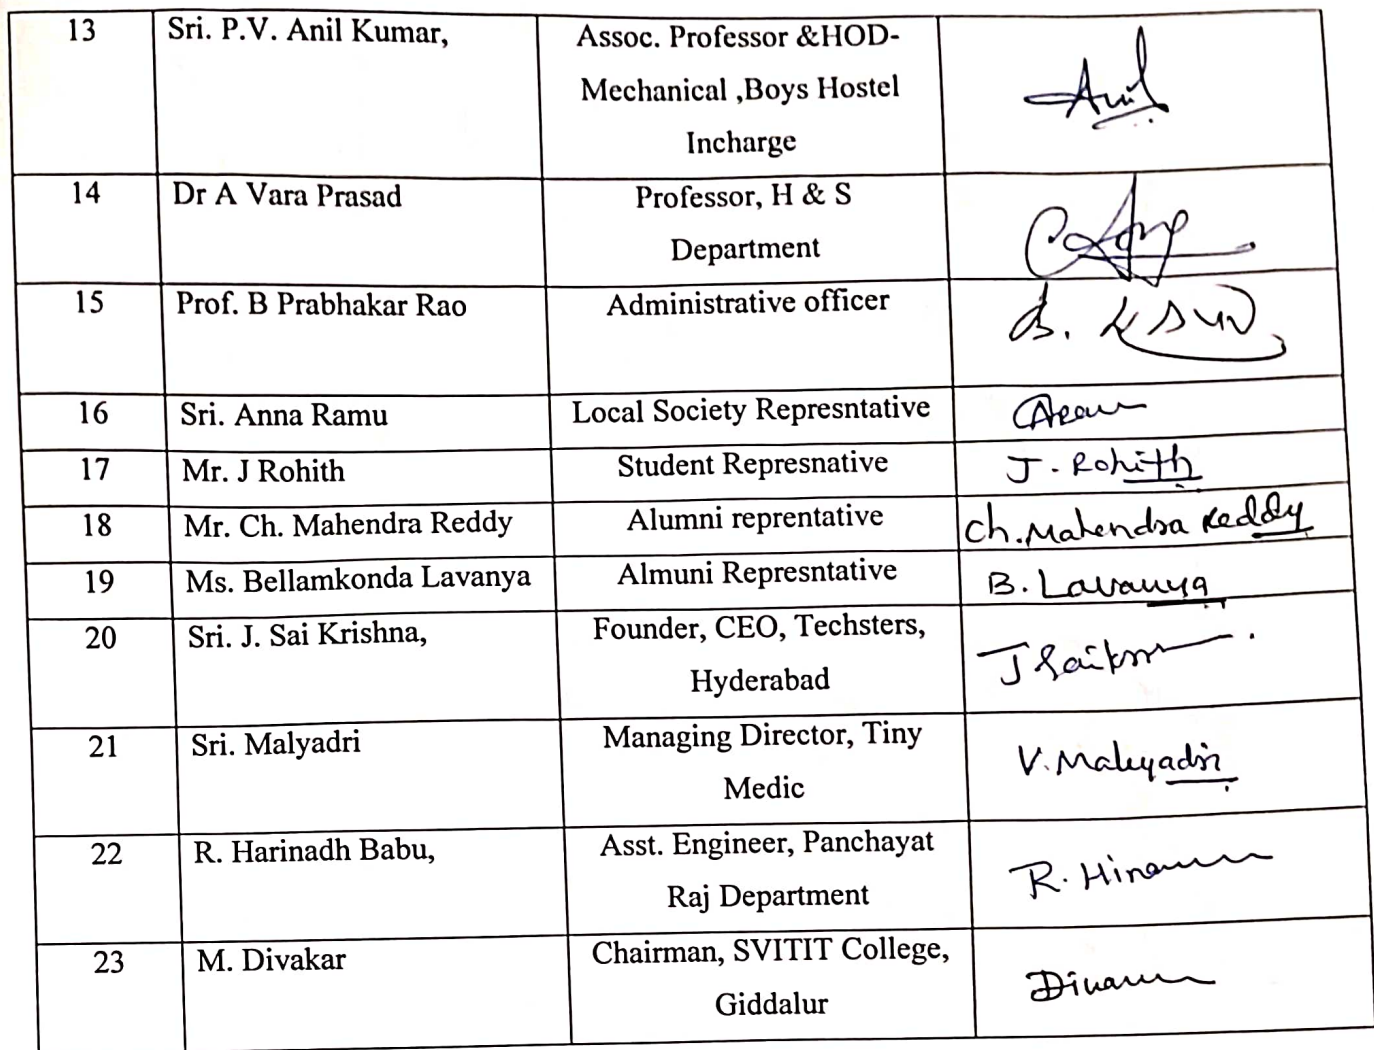 13 Sri. P.V. Anil Kumar, Assoc. Professor &HOD-
Mechanical ,Boys Hostel
Incharge
Anil
14 Dr A Vara Prasad Professor, H & S
Department
15 Prof. B Prabhakar Rao Administrative officer
16 Sri. Anna Ramu Local Society Represntative
17 Mr. J Rohith Student Represnative J. Rohith
18 Mr. Ch. Mahendra Reddy Alumni reprentative Ch. Mahendra Reddy
19 Ms. Bellamkonda Lavanya Almuni Represntative B. Lavanya
20 Sri. J. Sai Krishna, Founder, CEO, Techsters,
Hyderabad
21 Sri. Malyadri Managing Director, Tiny
Medic
V. Malyadri
22 R. Harinadh Babu, Asst. Engineer, Panchayat
Raj Department
23 M. Divakar Chairman, SVITIT College,
Giddalur